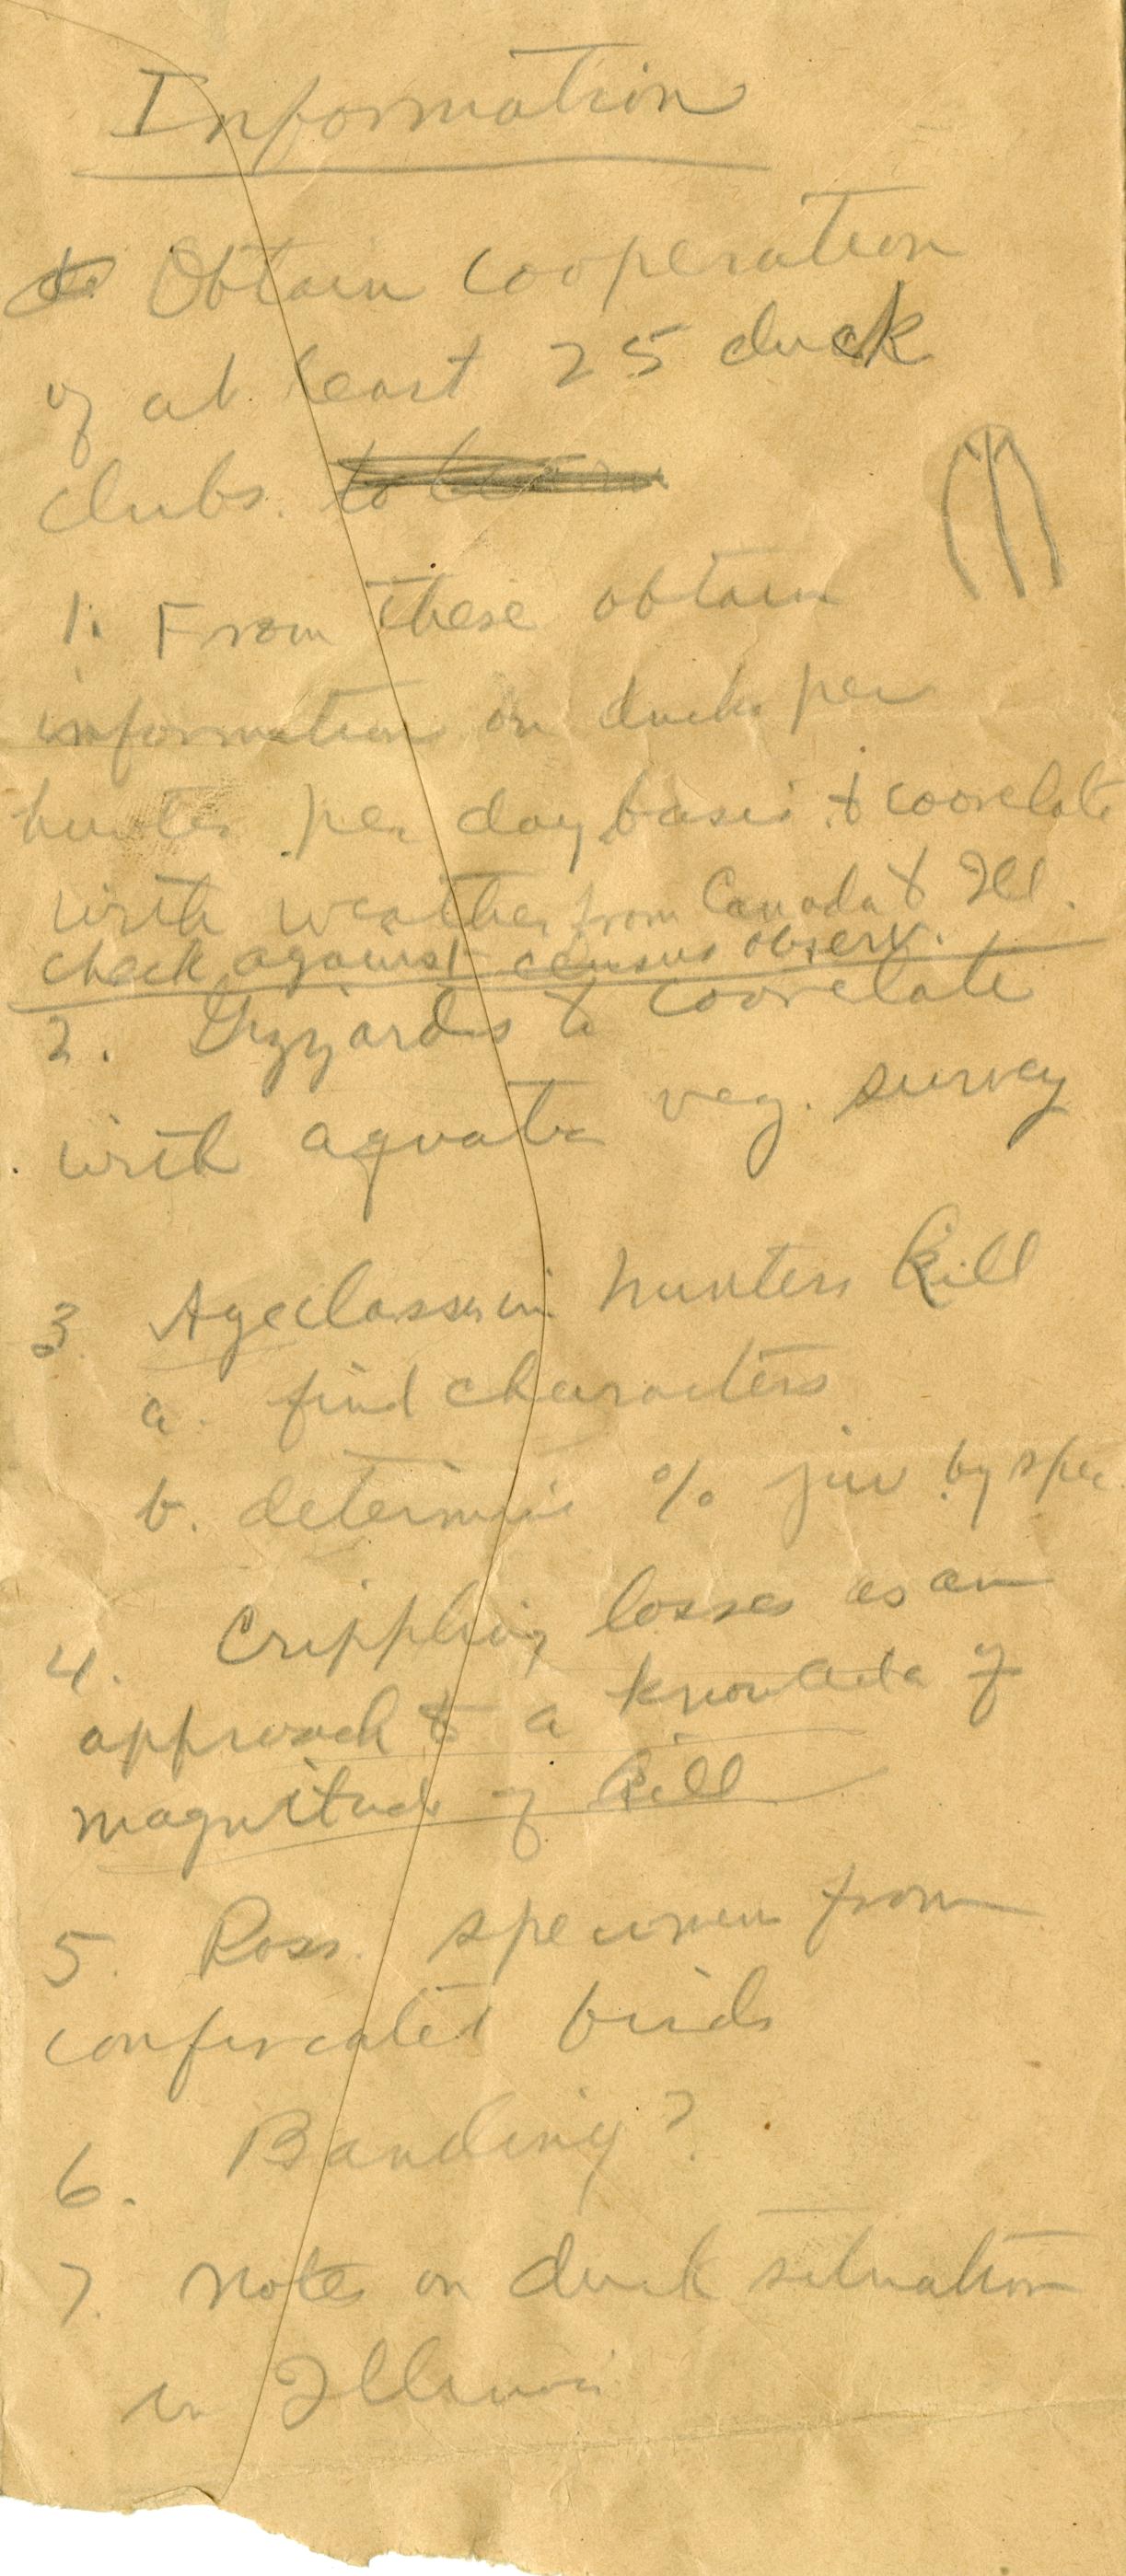 Information
Obtain cooperation
of at least 25 duck
clubs.
1. From these obtain
information on ducks per
hunter per day basis & coorelate
with weather from Canada & Ill.
check against census observ.
2. Gizzards & coorelate
with aquatic veg. survey
3. Age classes in hunters kill
a. find characters
b. determine % juv by spec.
4. Crippling losses as an
approach to a knowledge of
magnitude of kill
5. Poss. specimen from
confiscated birds
6. Banding?
7. Notes on duck situation
in Illinois